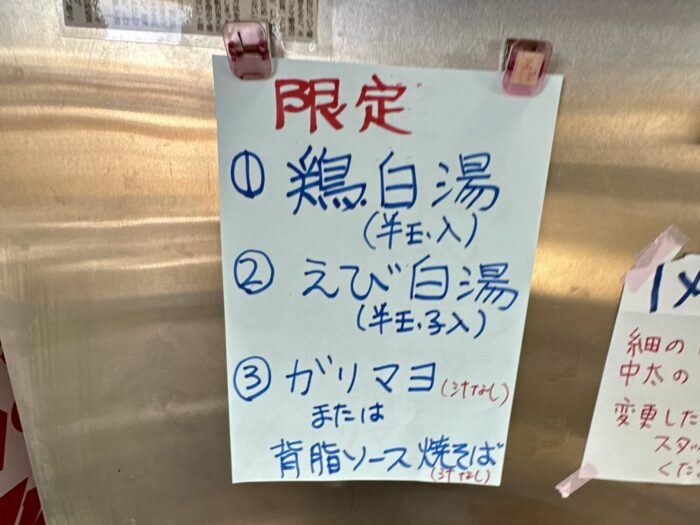 限定
① 鶏白湯
(半玉入)
② えび白湯
(半玉子入)
③ ガリマヨ(汁なし)
または
背脂ソース焼そば
(汁なし)
1メ
細の
中太の
変更した
スタッ
くださ